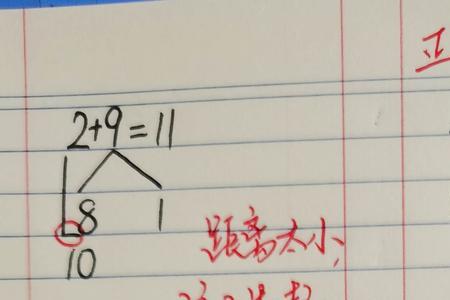 正
2+9=11
8 1
距离太小,
10